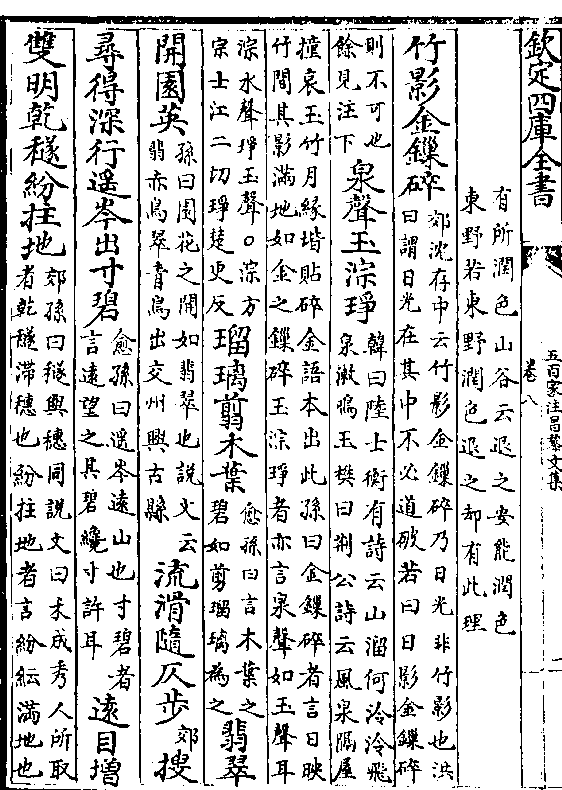 欽定四庫全書
五百家注昌黎文集
卷八
有所潤色山谷云退之安能潤色
東野若東野潤色退之却有此理
竹影金鏁碎
郊沈存中云竹影金鏁碎乃日光非竹影也洪
曰謂日光在其中不必道破若曰日影金鏁碎
則不可也
餘見注下
泉聲玉淙琤
韓曰陸士衡有詩云山溜何泠泠飛
泉漱鳴玉樊曰荆公詩云風泉隔屋
撞哀玉竹月緣堦貼碎金語本出此孫曰金鏁碎者言日映
竹間其影滿地如金之鏁碎玉淙琤者亦言泉聲如玉聲耳
淙水聲琤玉聲○淙方
宗士江二切琤楚更反
瑠璃剪木葉
愈孫曰言木葉之
碧如剪瑠璃為之
翡翠
開園英
孫曰園花之開如翡翠也說文云
翡赤鳥翠青鳥出交州興古縣
流滑隨仄步
郊
搜
尋得深行遥岑出寸碧
愈孫曰遥岑遠山也寸碧者
言遠望之其碧纔寸許耳
遠目增
雙明乾穟紛拄地
郊孫曰穟與穗同說文曰禾成秀人所取
者乾穟滯穗也紛拄地者言紛紜滿地也